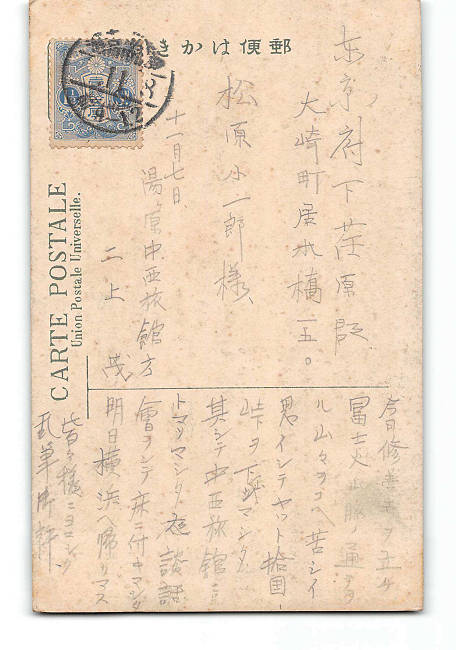 郵便はかき
東京府下荏原郡
大崎町居木橋一五。
松原小一郎様
十一月七日、
湯ヶ原中西旅館方
二上茂
CARTE POSTALE
Union Postale Universelle.
今日修善寺ヲ立チ
冨士火山脈ノ通
ル山々ヲコヘ苦シイ
思イシテヤット拾国
峠ヲ下リマシタ
其シテ中西旅館ニ
トマリマシタ 夜談話
會ヲシテ床ニ付キマシタ
明日横浜ヘ帰リマス
皆々様ニヨロシク
乱筆御許